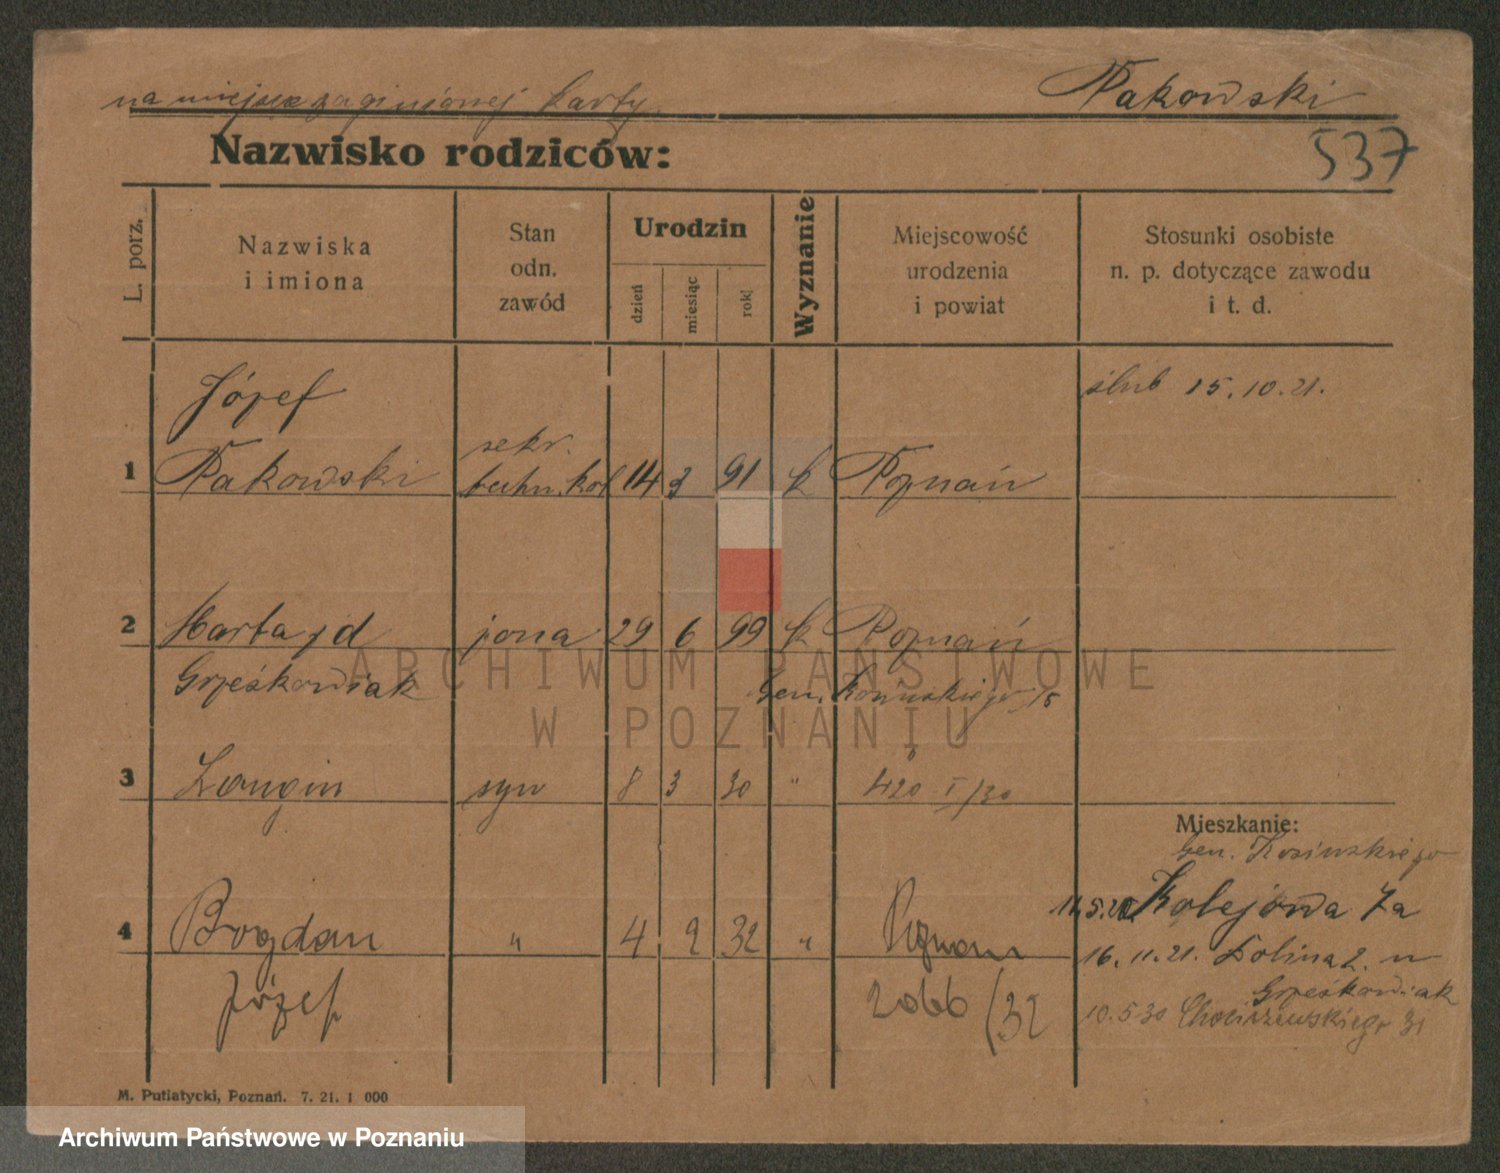 na miejsce zaginionej karty
Pakowski
537
Nazwisko rodziców:
L. porz.
Nazwiska
i imiona
Stan
odn.
zawód
Urodzin
dzień
miesiąc
rok
Wyznanie
Miejscowość
urodzenia
i powiat
Stosunki osobiste
n. p. dotyczące zawodu
i t. d.
Józef
ślub 15.10.21.
1 Pakowski sekr. techn. kol 14 3 91 k Poznań
2 Marta z d żona 29 6 99 k Poznań
Grześkowiak
Gen. Kosińskiego 15
3 Longin syn 8 3 30 " 420 I/30
Mieszkanie:
Gen. Kosińskiego
Kolejowa 7a
4 Bogdan " 4 2 32 " Poznań
16.11.21. Dolina 2. u
Grześkowiak
Józef
2066/32
10.5.30 Chociszewskiego 31
M. Putiatycki, Poznań. 7. 21. 1 000
ARCHIWUM PAŃSTWOWE
W POZNANIU
Archiwum Państwowe w Poznaniu